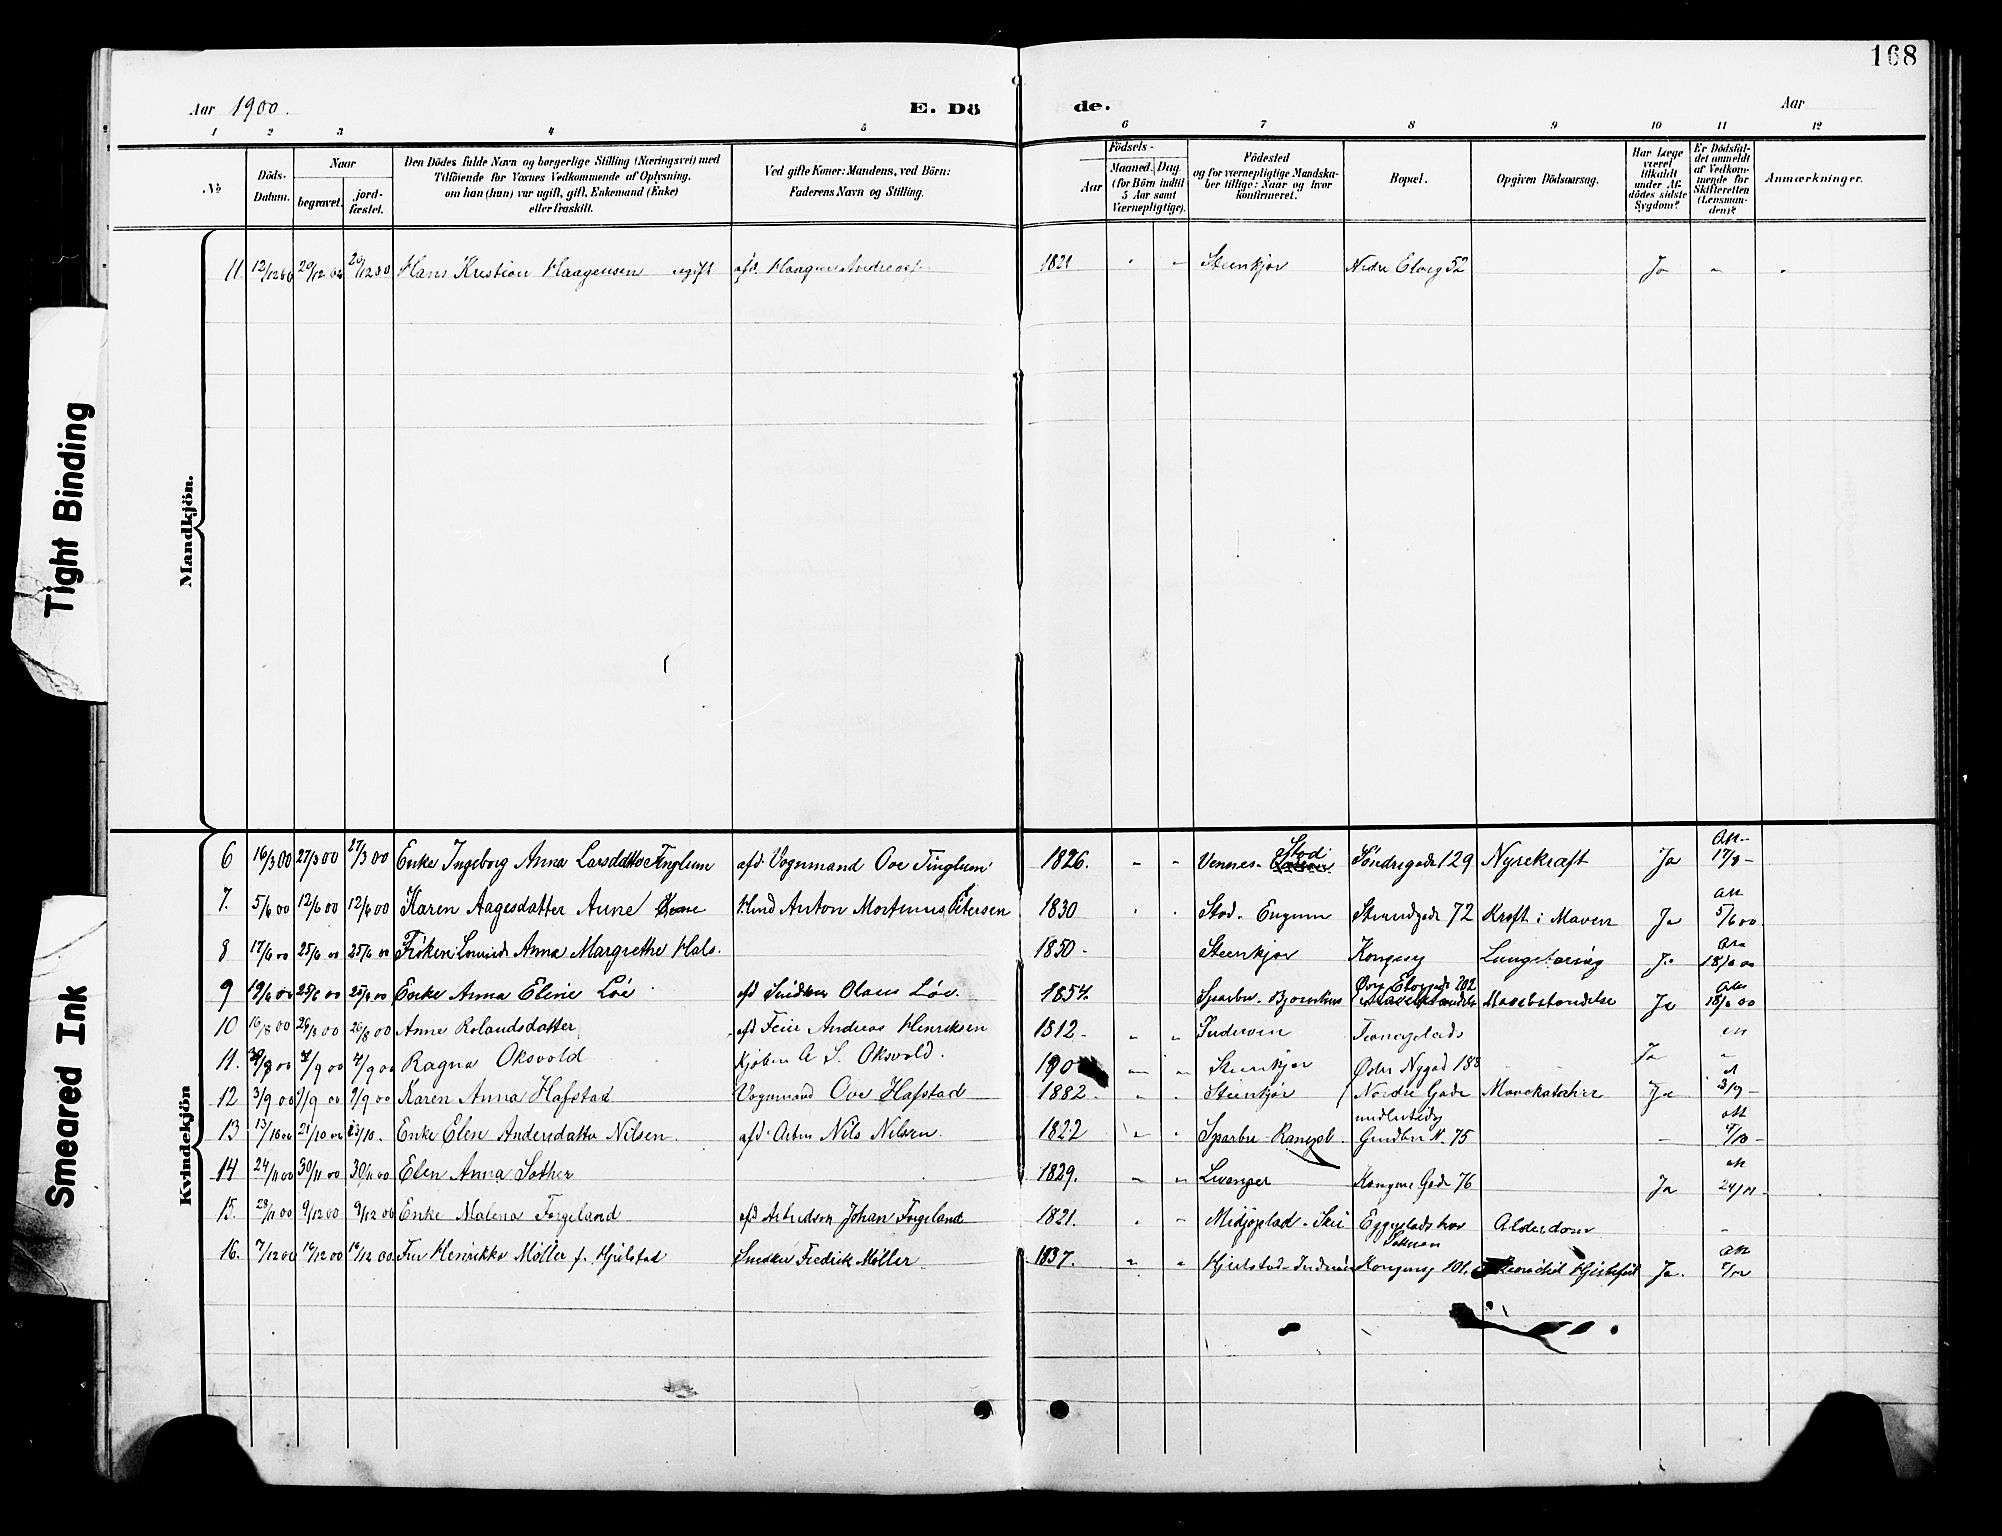 168
Aar 1900.
E. Dö de.
Aar
1 2 3 4 5 6 7 8 9 10 11 12
No
Döds-Datum.
Naar
begravet.
jord-fæstet.
Den Dödes fulde Navn og borgerlige Stilling (Næringsvei) med
Tilföiende for Voxnes Vedkommende af Oplysning,
om han (hun) var ugift, gift, Enkemand (Enke)
eller fraskilt.
Ved gifte Koner: Mandens, ved Börn:
Faderens Navn og Stilling.
Födsels-
Aar
Maaned. Dag.
(for Börn indtil
5 Aar samt
Værnepligtige).
Födested
og for værnepligtige Mandska-
ber tillige: Naar og hvor
konfirmeret.
Bopæl.
Opgiven Dödsaarsag.
Har Læge
været
tilkaldt
under Af-
dödes sidste
Sygdom?
Er Dödsfal-
det anmeldt
af Vedkom-
mende for
Skifteretten
(Lensman-
den)?
Anmærkninger.
Mandkjön.
11. 12/12 00 20/12 00 20/12 00 Hans Kristian Haagensen ugift afd. Haagen 1821 " " Steenkjær 52 Ja "
Kvindekjön
6 16/3 00 27/3 00 27/3 00 Enke Ingeborg Anna Larsdatter Tinglum afd. Vognmand Ove Tinglum 1826. " " Vennes- Stod Söndregade 129 Nyrekræft Ja 17/3 -
7. 5/6 00 12/6 00 12/6 00 Karen Aagesdatter Aune Anton Mortinus Petersen 1830 " " Stod. Strandgade 72 Kræft i Maven Ja 5/6 00.
8 17/6 00 25/6 00 25/6 00 Fröken Anna Margrethe Hals. 1850 - Steenkjær Kongeng Ja 18/6 00
9 19/6 00 25/6 00 25/6 00 Enke Anna Eline Löe afd Olaus Löe. 1854. Sparbu. 202 Ja 18/6 00
10 16/8 00 26/8 00 26/8 00 Anne Rolandsdatter afd Feier Andreas Henriksen 1812 " " Inderöen
11. 7/9 00 7/9 00 Ragna Oksvold Kjöbm A S. Oksvold. 190 " " Steenkjær Nygad 188 Ja "
12 3/9 00 9/9 00 9/9 00 Karen Anna Hafstad Vognmand Ove Hafstad 1882 " " Steenkjær Nordre Gade Mavekatarhr Ja 3/9 -
13 13/10 00 21/10 00 Enke Elen Andersdatter Nilsen. afd. Nils Nilsen. 1822 " " Sparbu 75 -
14 24/11 00 30/11 00 30/11 00 Elen Anna Sother 1829. " " Levanger Kongens Gade 76 Ja 24/11 -
15. 28/11 00 9/12 00 9/12 00 Enke Malena Forgeland afd Johan Forgeland 1821. " " Alderdom "
16. 7/12 00 Fru Henrikke Möller f. Hjelstad Fredrik Möller. 1837. " " Hjelstad- Kongeng 101. Ja.
Tight Binding
Smeared Ink